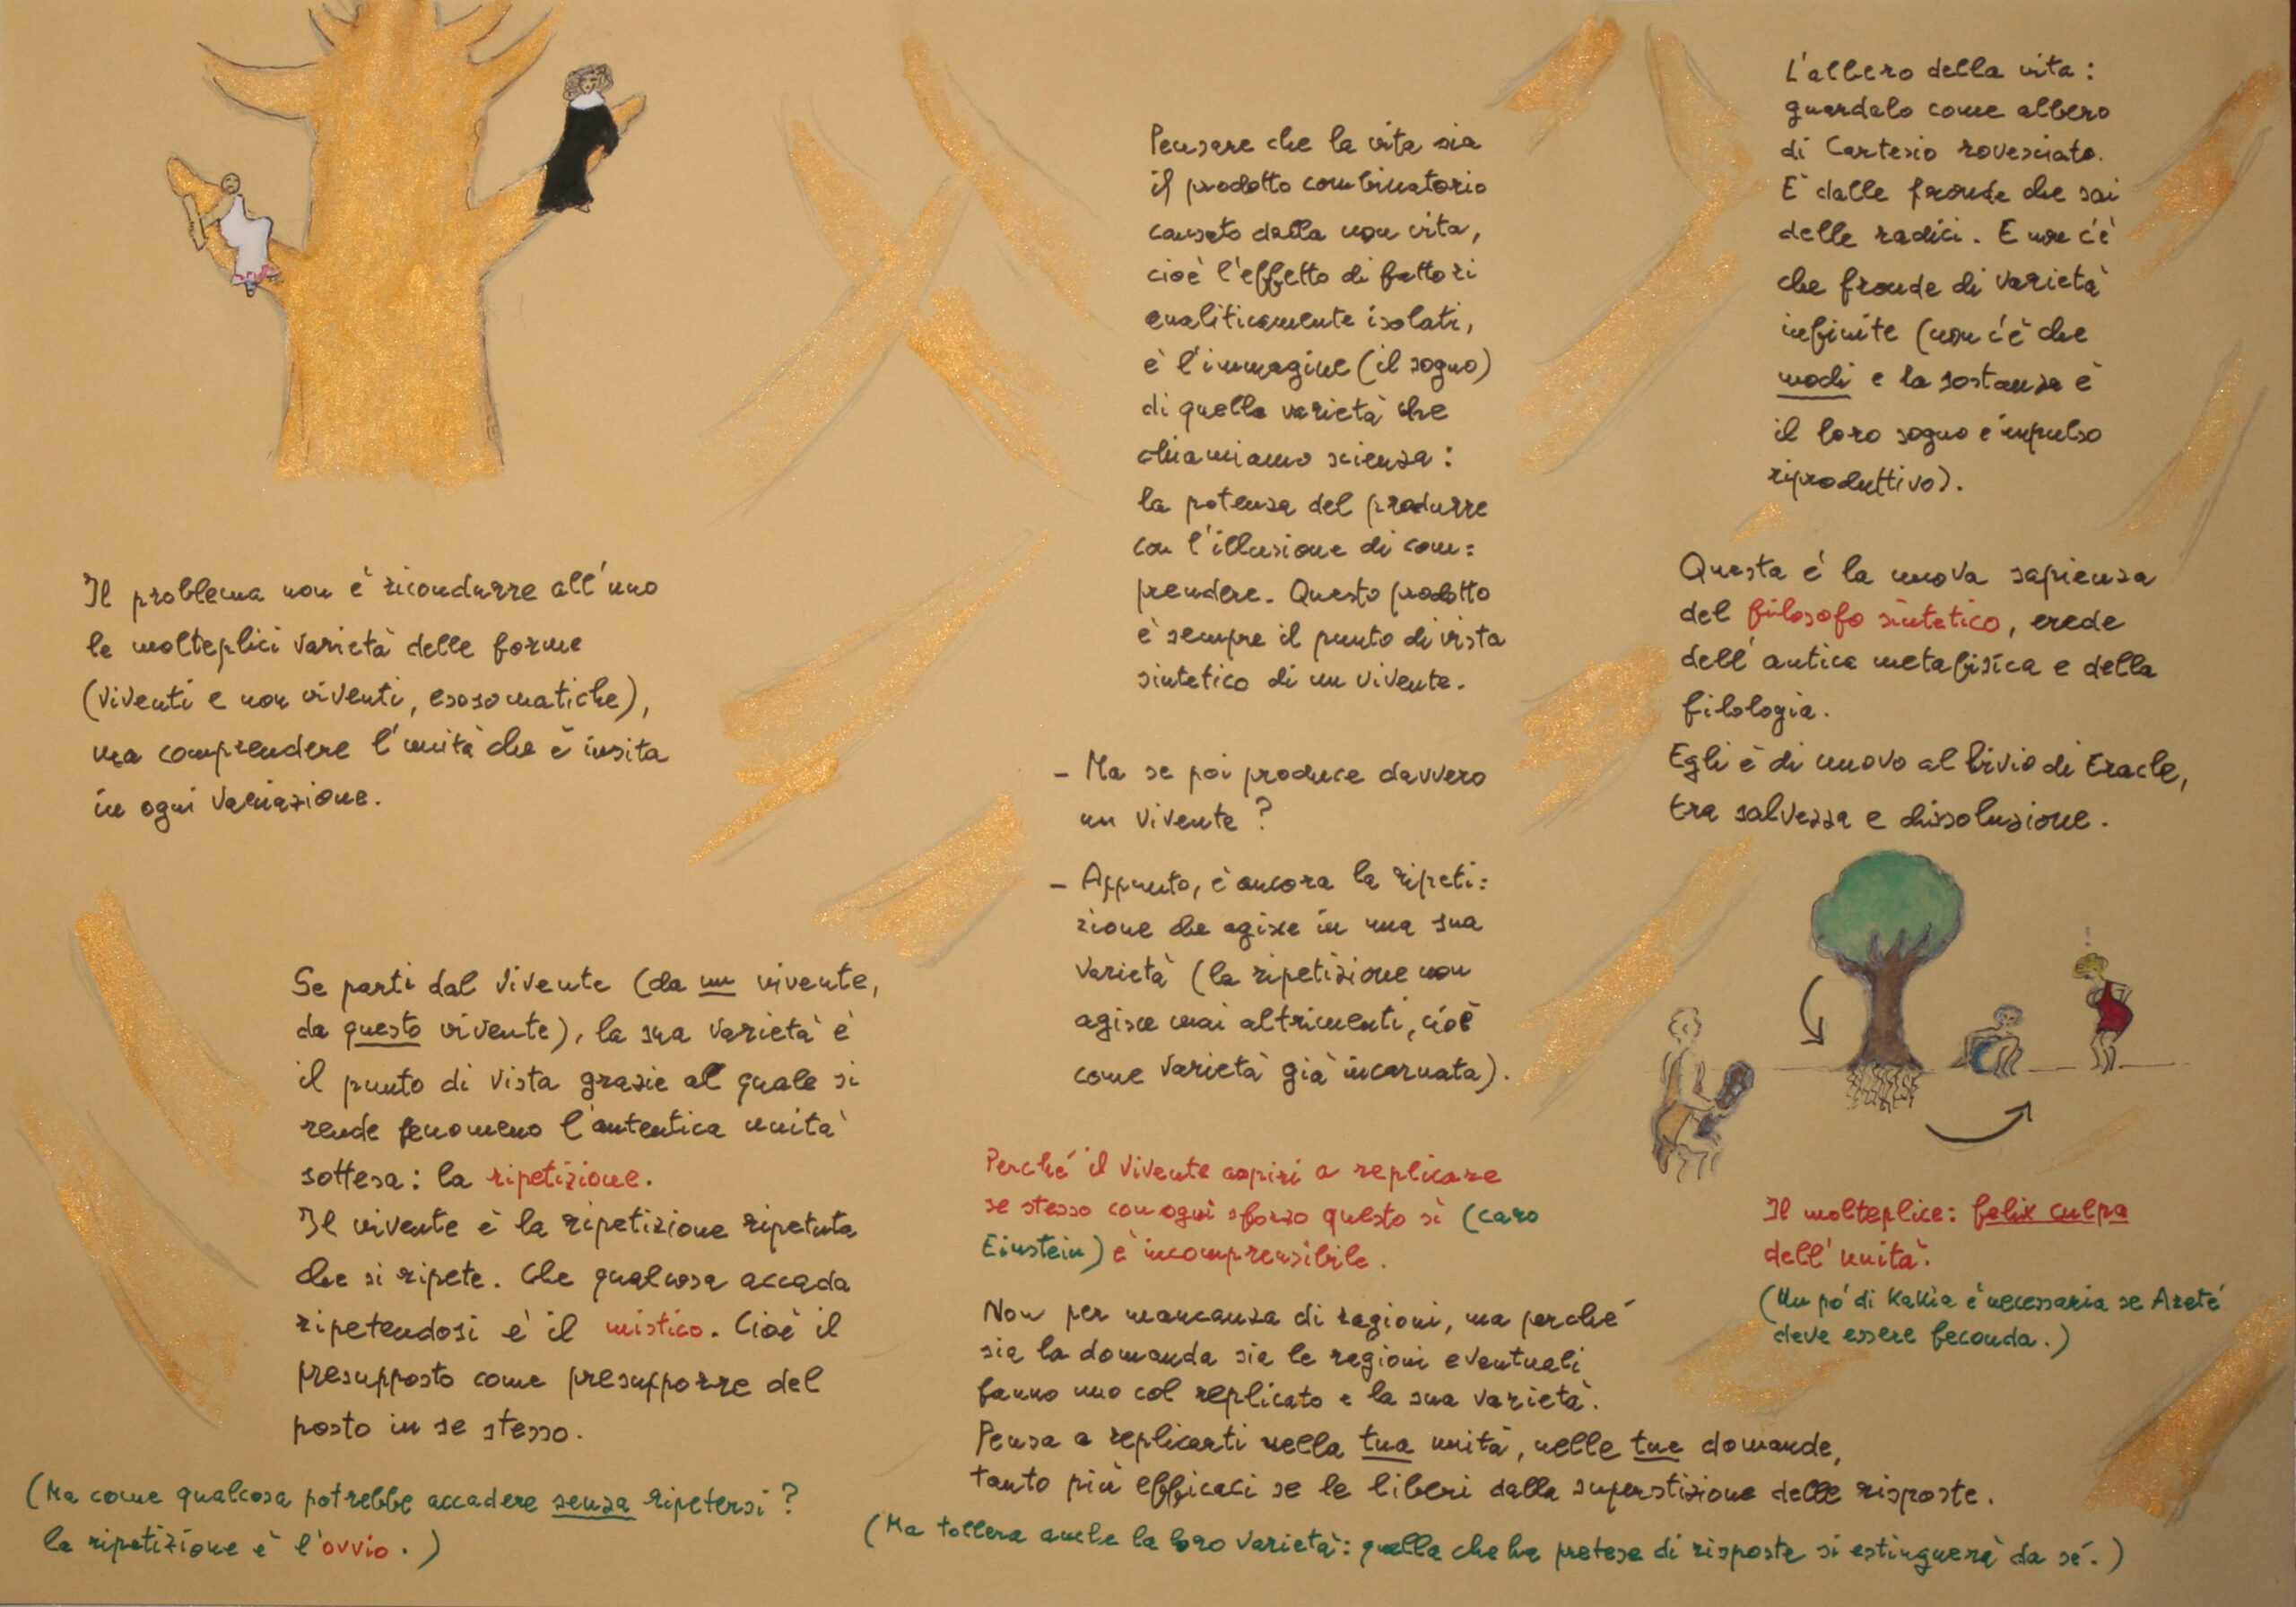 Il problema non è ricondurre all'uno
le molteplici varietà delle forme
(viventi e non viventi, esosomatiche),
ma comprendere l'unità che è insita
in ogni variazione.
Se parti dal vivente (da un vivente,
da questo vivente), la sua varietà è
il punto di vista grazie al quale si
rende fenomeno l'autentica unità
sottesa: la ripetizione.
Il vivente è la ripetizione ripetuta
che si ripete. Che qualcosa accada
ripetendosi è il mistico. Cioè il
presupposto come presupporre del
posto in se stesso.
(Ma come qualcosa potrebbe accadere senza ripetersi?
la ripetizione è l'ovvio.)
Pensare che la vita sia
il prodotto combinatorio
causato dalla non vita,
cioè l'effetto di fattori
analiticamente isolati,
è l'immagine (il sogno)
di quella varietà che
chiamiamo scienza:
la potenza del produrre
con l'illusione di com=
prendere. Questo prodotto
è sempre il punto di vista
sintetico di un vivente.
- Ma se poi produce davvero
un vivente?
- Appunto, è ancora la ripeti=
zione che agisce in una sua
varietà (la ripetizione non
agisce mai altrimenti, cioè
come varietà già incarnata).
Perché il vivente aspiri a replicare
se stesso con ogni sforzo questo sì (caro
Einstein) è incomprensibile.
Non per mancanza di ragioni, ma perché
sia la domanda sia le ragioni eventuali
fanno uno col replicato e la sua varietà.
Pensa a replicarti nella tua unità, nelle tue domande,
tanto più efficaci se le liberi dalla superstizione delle risposte.
(Ma tollera anche la loro varietà: quella che ha pretese di risposte si estinguerà da sé.)
L'albero della vita:
guardalo come albero
di Cartesio rovesciato.
È dalle fronde che sai
delle radici. E non c'è
che fronde di varietà
infinite (non c'è che
modi e la sostanza è
il loro sogno e impulso
riproduttivo).
Questa è la nuova sapienza
del filosofo sintetico, erede
dell'antica metafisica e della
filologia.
Egli è di nuovo al bivio di Eracle,
tra salvezza e dissoluzione.
!
Il molteplice: felix culpa
dell'unità.
(Un pò di Kakia è necessaria se Areté
deve essere feconda.)